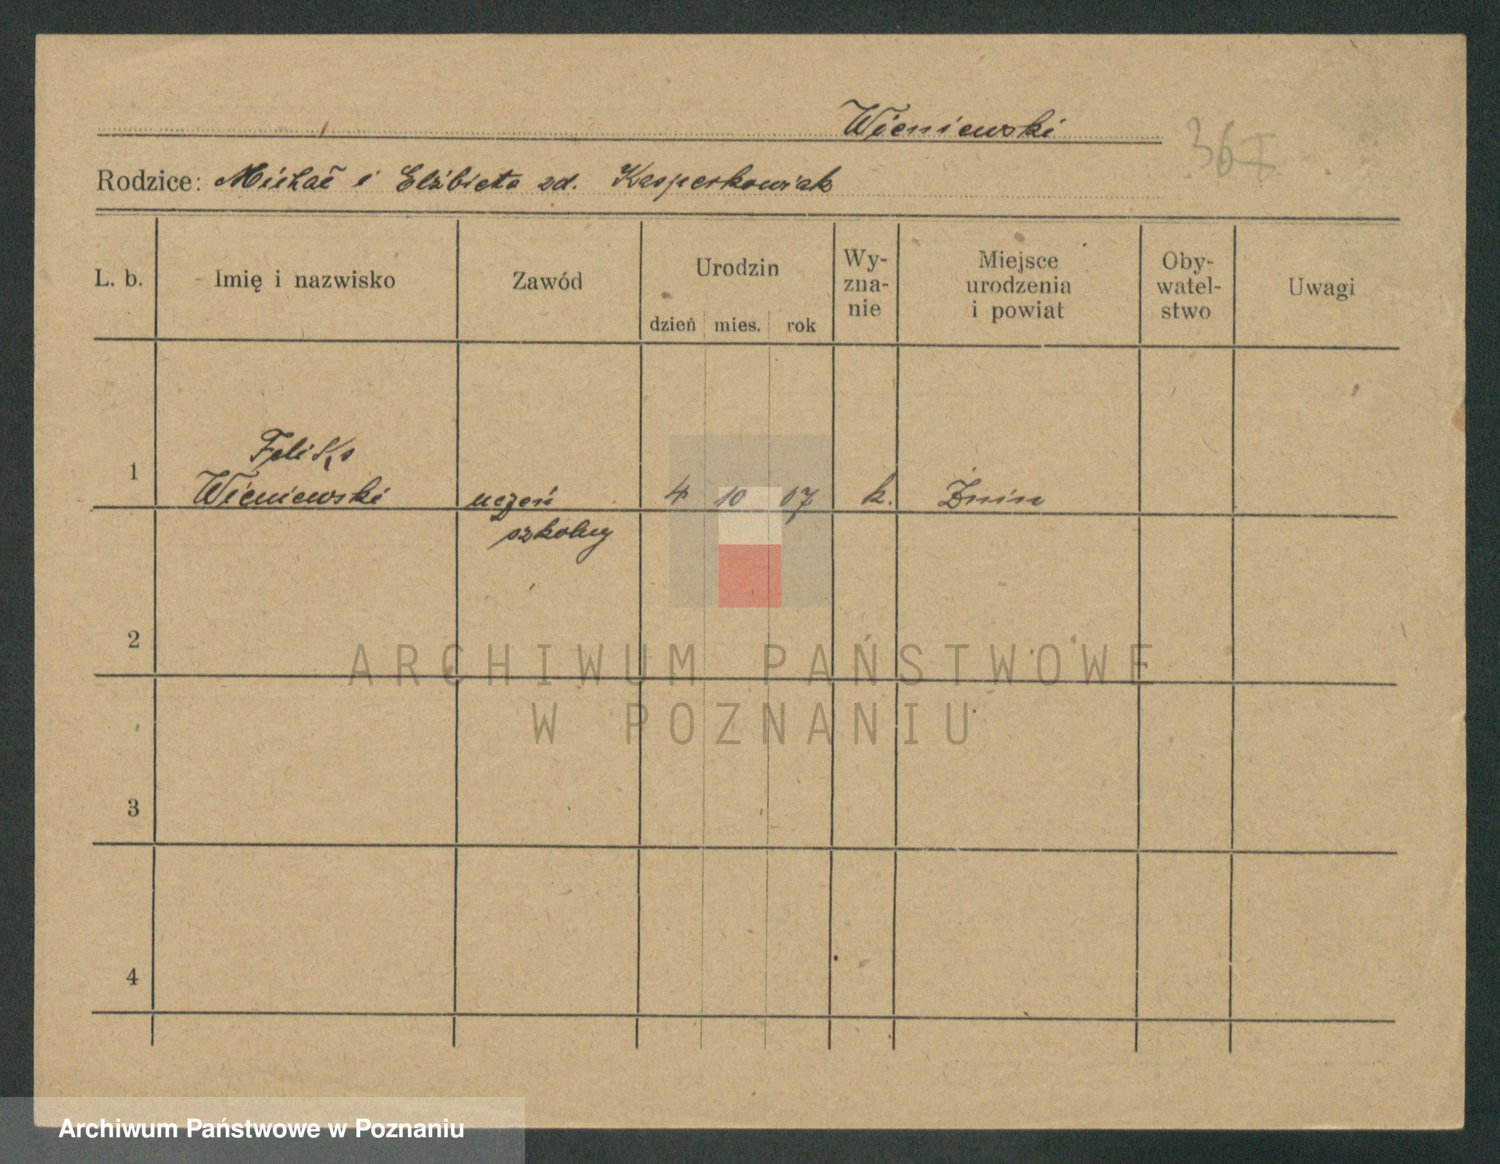 Wieniewski
36 I
Rodzice: Michał i Elżbieta zd. Kasperkowiak
L. b.
Imię i nazwisko
Zawód
Urodzin
dzień mies. rok
Wy-
zna-
nie
Miejsce
urodzenia
i powiat
Oby-
watel-
stwo
Uwagi
1
Feliks
Wieniewski
uczeń
szkolny
4 10 07
k.
Żnin
2
3
4
ARCHIWUM PAŃSTWOWE
W POZNANIU
Archiwum Państwowe w Poznaniu